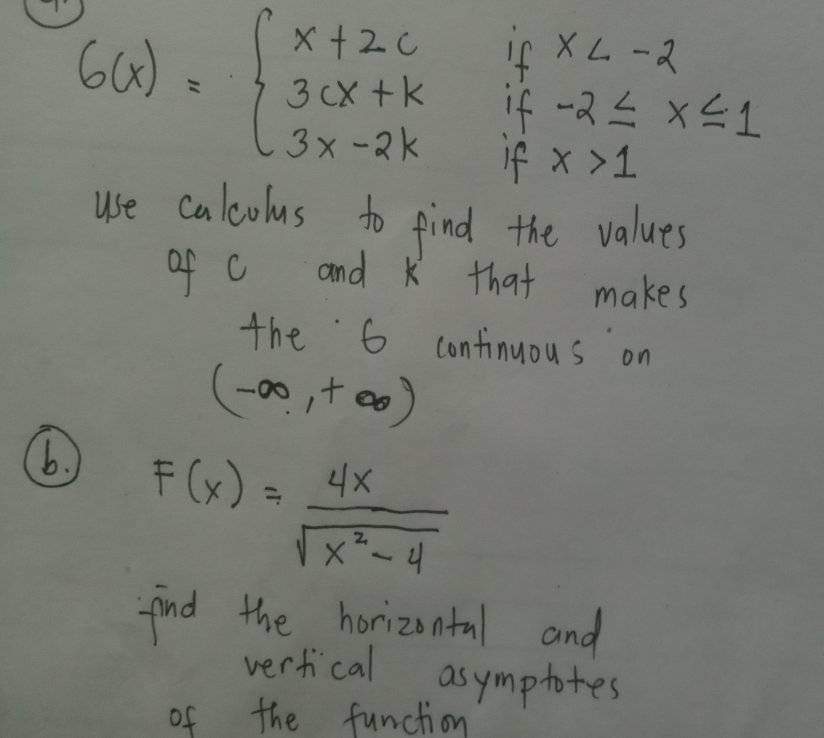 G(x) = { x + 2c if x < -2
3cx + k if -2 ≤ x ≤ 1
3x - 2k if x > 1
use calculus to find the values
of c and k that makes
the G continuous on
(-∞, +∞)
b. F(x) = 4x / √(x² - 4)
find the horizontal and
vertical asymptotes
of the function